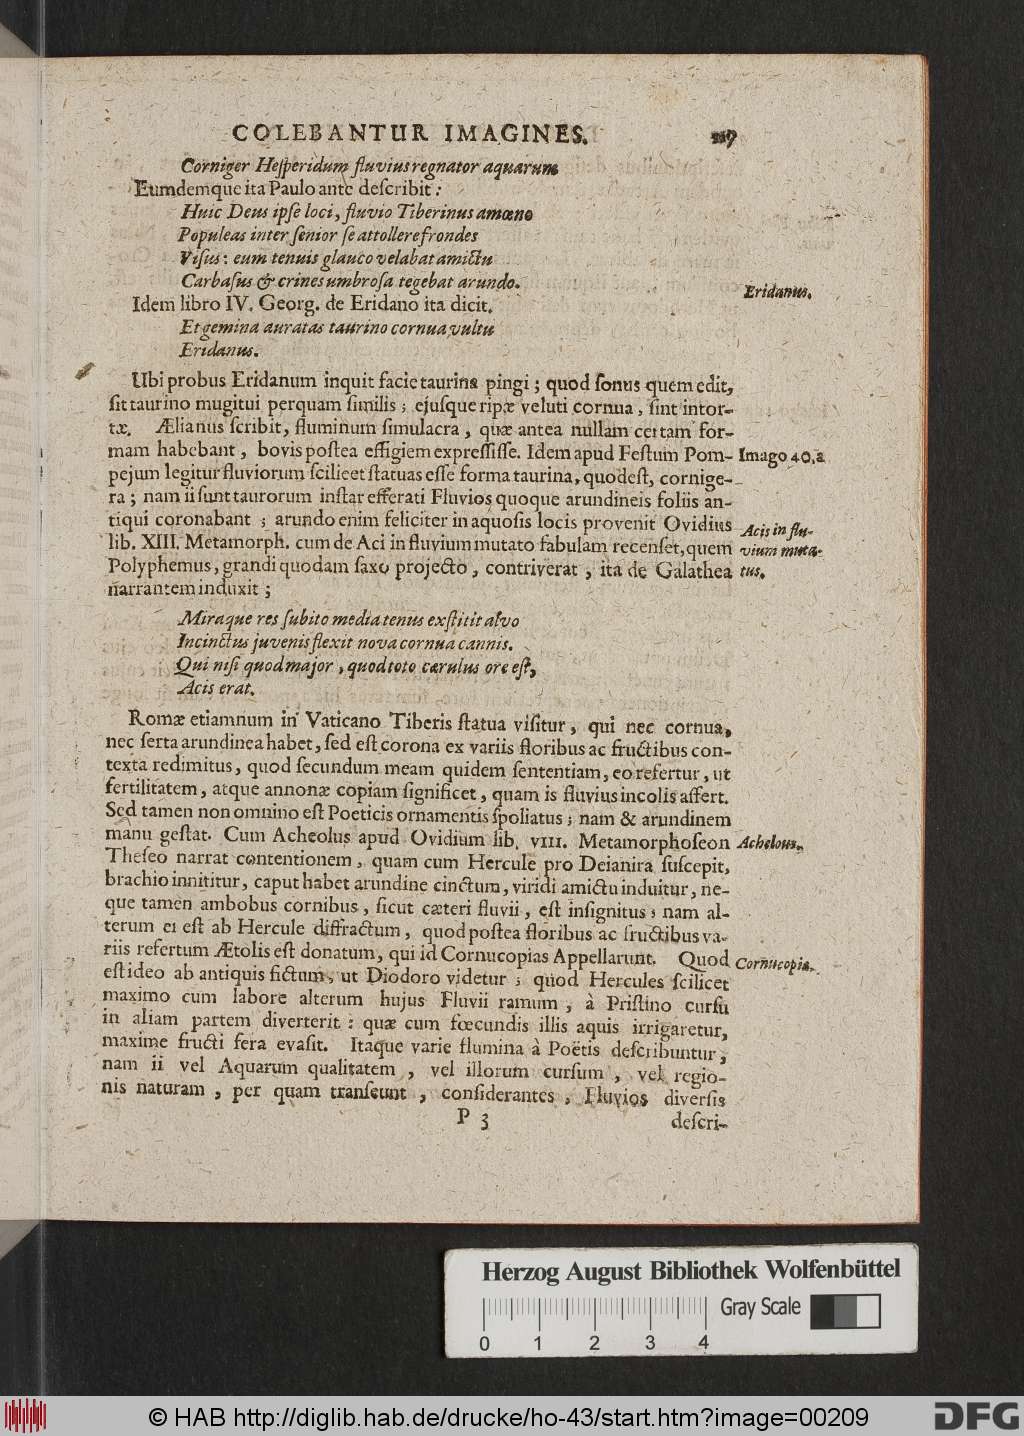 COLEBANTUR IMAGINES. 117
Corniger Heſperidum fluvius regnator aquarum
Eumdemque ita Paulo ante deſcribit:
Huic Deus ipſe loci, fluvio Tiberinus amœno
Populeas inter ſenior ſe attollere frondes
Viſus: eum tenuis glauco velabat amictu
Carbaſus & crines umbroſa tegebat arundo.
Eridanus.
Idem libro IV. Georg. de Eridano ita dicit.
Et gemina auratas taurino cornua vultu
Eridanus.
Ubi probus Eridanum inquit facie taurina pingi; quod ſonus quem edit,
ſit taurino mugitui perquam ſimilis; ejuſque ripæ veluti cornua, ſint intor-
tæ. Ælianus ſcribit, fluminum ſimulacra, quæ antea nullam certam for-
mam habebant, bovis poſtea effigiem expreſſiſſe. Idem apud Feſtum Pom-
Imago 40. a
pejum legitur fluviorum ſcilicet ſtatuas eſſe forma taurina, quodeſt, cornige-
ra; nam ii ſunt taurorum inſtar efferati Fluvios quoque arundineis foliis an-
tiqui coronabant; arundo enim feliciter in aquoſis locis provenit Ovidius
Acis in flu-
lib. XIII. Metamorph. cum de Aci in fluvium mutato fabulam recenſet, quem
vium muta-
Polyphemus, grandi quodam ſaxo projecto, contriverat, ita de Galathea
tus.
narrantem induxit;
Miraque res ſubito media tenus exſtitit alvo
Incinctus juvenis flexit nova cornua cannis.
Qui niſi quod major, quod toto cærulus ore eſt,
Acis erat.
Romæ etiamnum in Vaticano Tiberis ſtatua viſitur, qui nec cornua,
nec ſerta arundinea habet, ſed eſt corona ex variis floribus ac fructibus con-
texta redimitus, quod ſecundum meam quidem ſententiam, eo refertur, ut
fertilitatem, atque annonæ copiam ſignificet, quam is fluvius incolis affert.
Sed tamen non omnino eſt Poeticis ornamentis ſpoliatus; nam & arundinem
manu geſtat. Cum Acheolus apud Ovidium lib. VIII. Metamorphoſeon
Achelous.
Theſeo narrat contentionem, quam cum Hercule pro Deianira ſuſcepit,
brachio innititur, caput habet arundine cinctum, viridi amictu induitur, ne-
que tamen ambobus cornibus, ſicut cæteri fluvii, eſt inſignitus; nam al-
terum ei eſt ab Hercule diffractum, quod poſtea floribus ac fructibus va-
riis refertum Ætolis eſt donatum, qui id Cornucopias Appellarunt. Quod
Cornucopia.
eſt ideo ab antiquis fictum, ut Diodoro videtur; quod Hercules ſcilicet
maximo cum labore alterum hujus Fluvii ramum, à Priſtino curſu
in aliam partem diverterit: quæ cum fœcundis illis aquis irrigaretur,
maxime fructi fera evaſit. Itaque varie flumina à Poëtis deſcribuntur,
nam ii vel Aquarum qualitatem, vel illorum curſum, vel regio-
nis naturam, per quam tranſeunt, conſiderantes, Fluvios diverſis
P 3 deſcri-
Herzog August Bibliothek Wolfenbüttel
Gray Scale
0 1 2 3 4
© HAB http://diglib.hab.de/drucke/ho-43/start.htm?image=00209
DFG